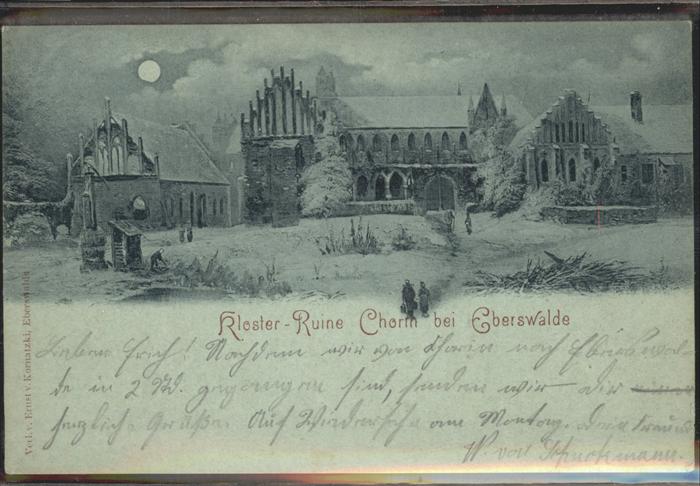 Kloster-Ruine Chorin bei Eberswalde
Verl. v. Ernst v. Kornatzki, Eberswalde
Lieber Erich! Nachdem wir von Chorin nach Eberswal-
de in 2 Std. gegangen sind, senden wir dir
herzliche Grüße. Auf Wiedersehn am Montag. Dein
W. von